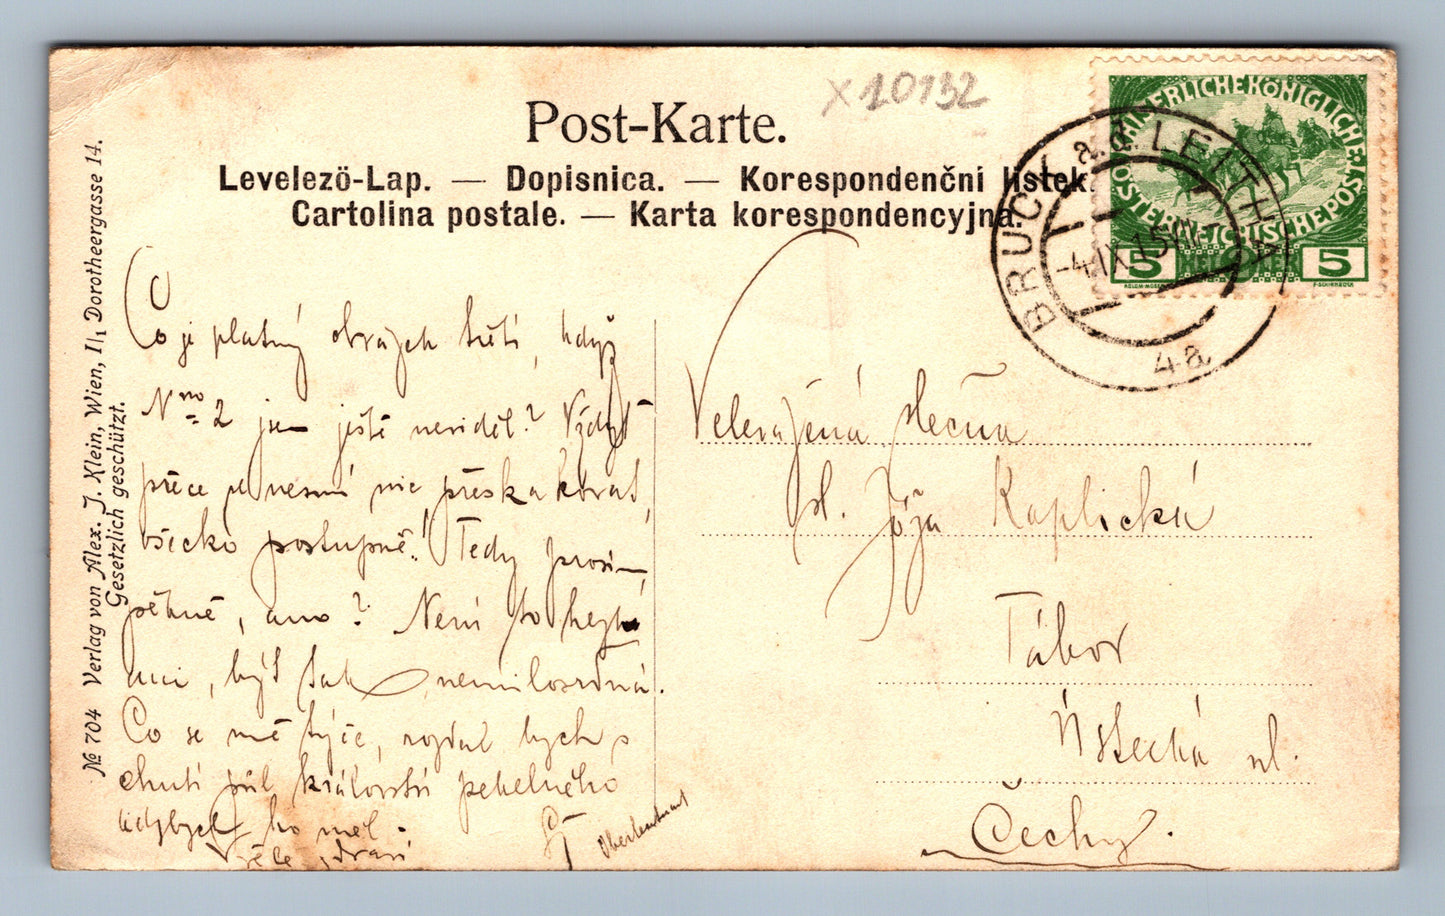 x 10132
Post-Karte.
Levelezö-Lap. — Dopisnica. — Korespondenční lístek.
Cartolina postale. — Karta korespondencyjna.
KAISERLICHE KÖNIGLICHE
ÖSTERREICHISCHE POST
5 5
BRUCK a. d. LEITHA
-4.IX.15
4a
№ 704 Verlag von Alex. J. Klein, Wien, I/1, Dorotheergasse 14.
Gesetzlich geschützt.
Co je platný obrázek třetí, když
Nro 2 jsem ještě neviděl? Vždyť
přece se nesmí nic přeskakovat,
všecko postupně! Tedy prosím
pěkně, ano? Není to hezké
ani, být tak nemilosrdná.
Co se mě týče, rozdal bych s
chutí půl království pekelného
kdybych ho měl.
zdraví
Oberleutnant
Velevážená slečna
sl. Józa Kaplická
Tábor
Ústecká ul.
Čechy.